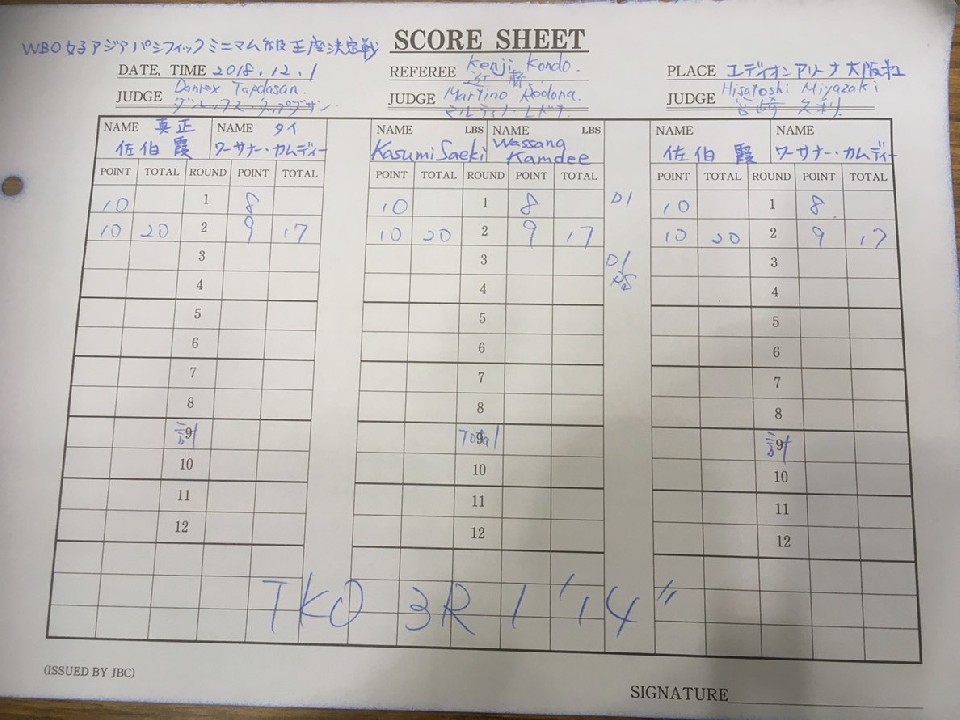 WBO女子アジアパシフィックミニマム級王座決定戦
SCORE SHEET
DATE, TIME 2018.12.1
REFEREE Kenji Kondo.
PLACE エディオンアリーナ大阪
JUDGE Danrex Tapdasan
JUDGE Martino Redona.
JUDGE Hisatoshi Miyazaki
ダンレックス・タップダサン
マルティノ・レドナ
宮崎 久利
NAME 真正 NAME タイ
佐伯霞 ワーサナー・カムディー
NAME LBS NAME LBS
Kasumi Saeki Wassana Kamdee
NAME NAME
佐伯 霞 ワーサナー・カムディー
POINT TOTAL ROUND POINT TOTAL POINT TOTAL ROUND POINT TOTAL POINT TOTAL ROUND POINT TOTAL
10 1 8 10 1 8 D1 10 1 8
10 20 2 9 17 10 20 2 9 17 10 20 2 9 17
3 3 D1 3
4 4 4
5 5 5
6 6 6
7 7 7
8 8 8
9 計 9 Total 9 計
10 10 10
11 11 11
12 12 12
TKO 3R 1'14"
(ISSUED BY JBC)
SIGNATURE